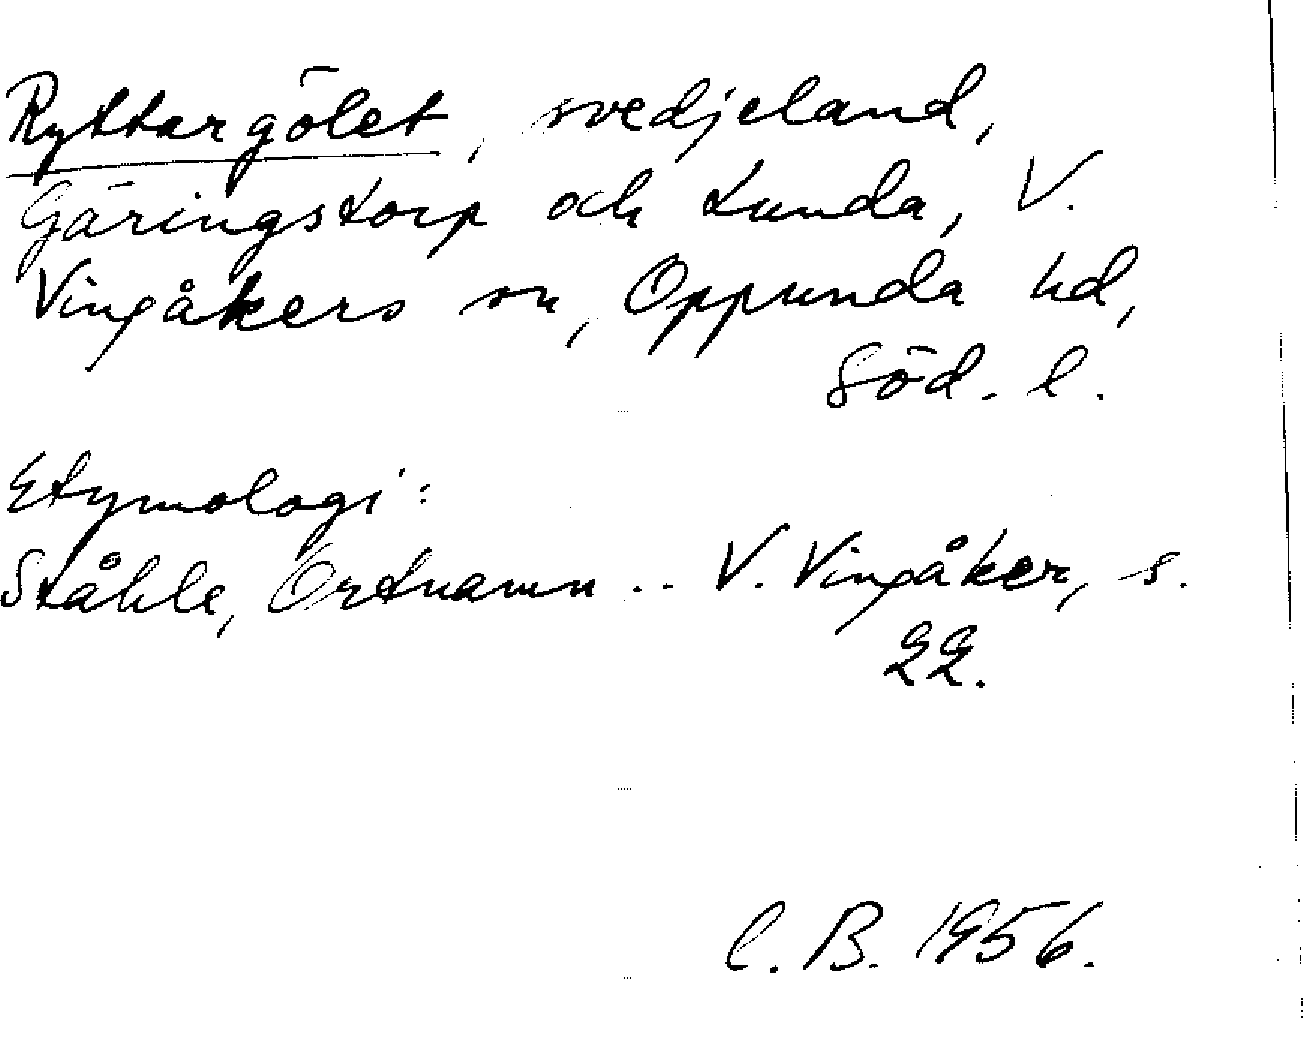 Ryttargölet, svedjeland,
Gäringstorp och Lunda, V.
Vingåkers sn, Oppunda hd,
Söd. l.
Etymologi:
Ståhle, Ortnamn .. V. Vingåker, s.
22.
C. B. 1956.